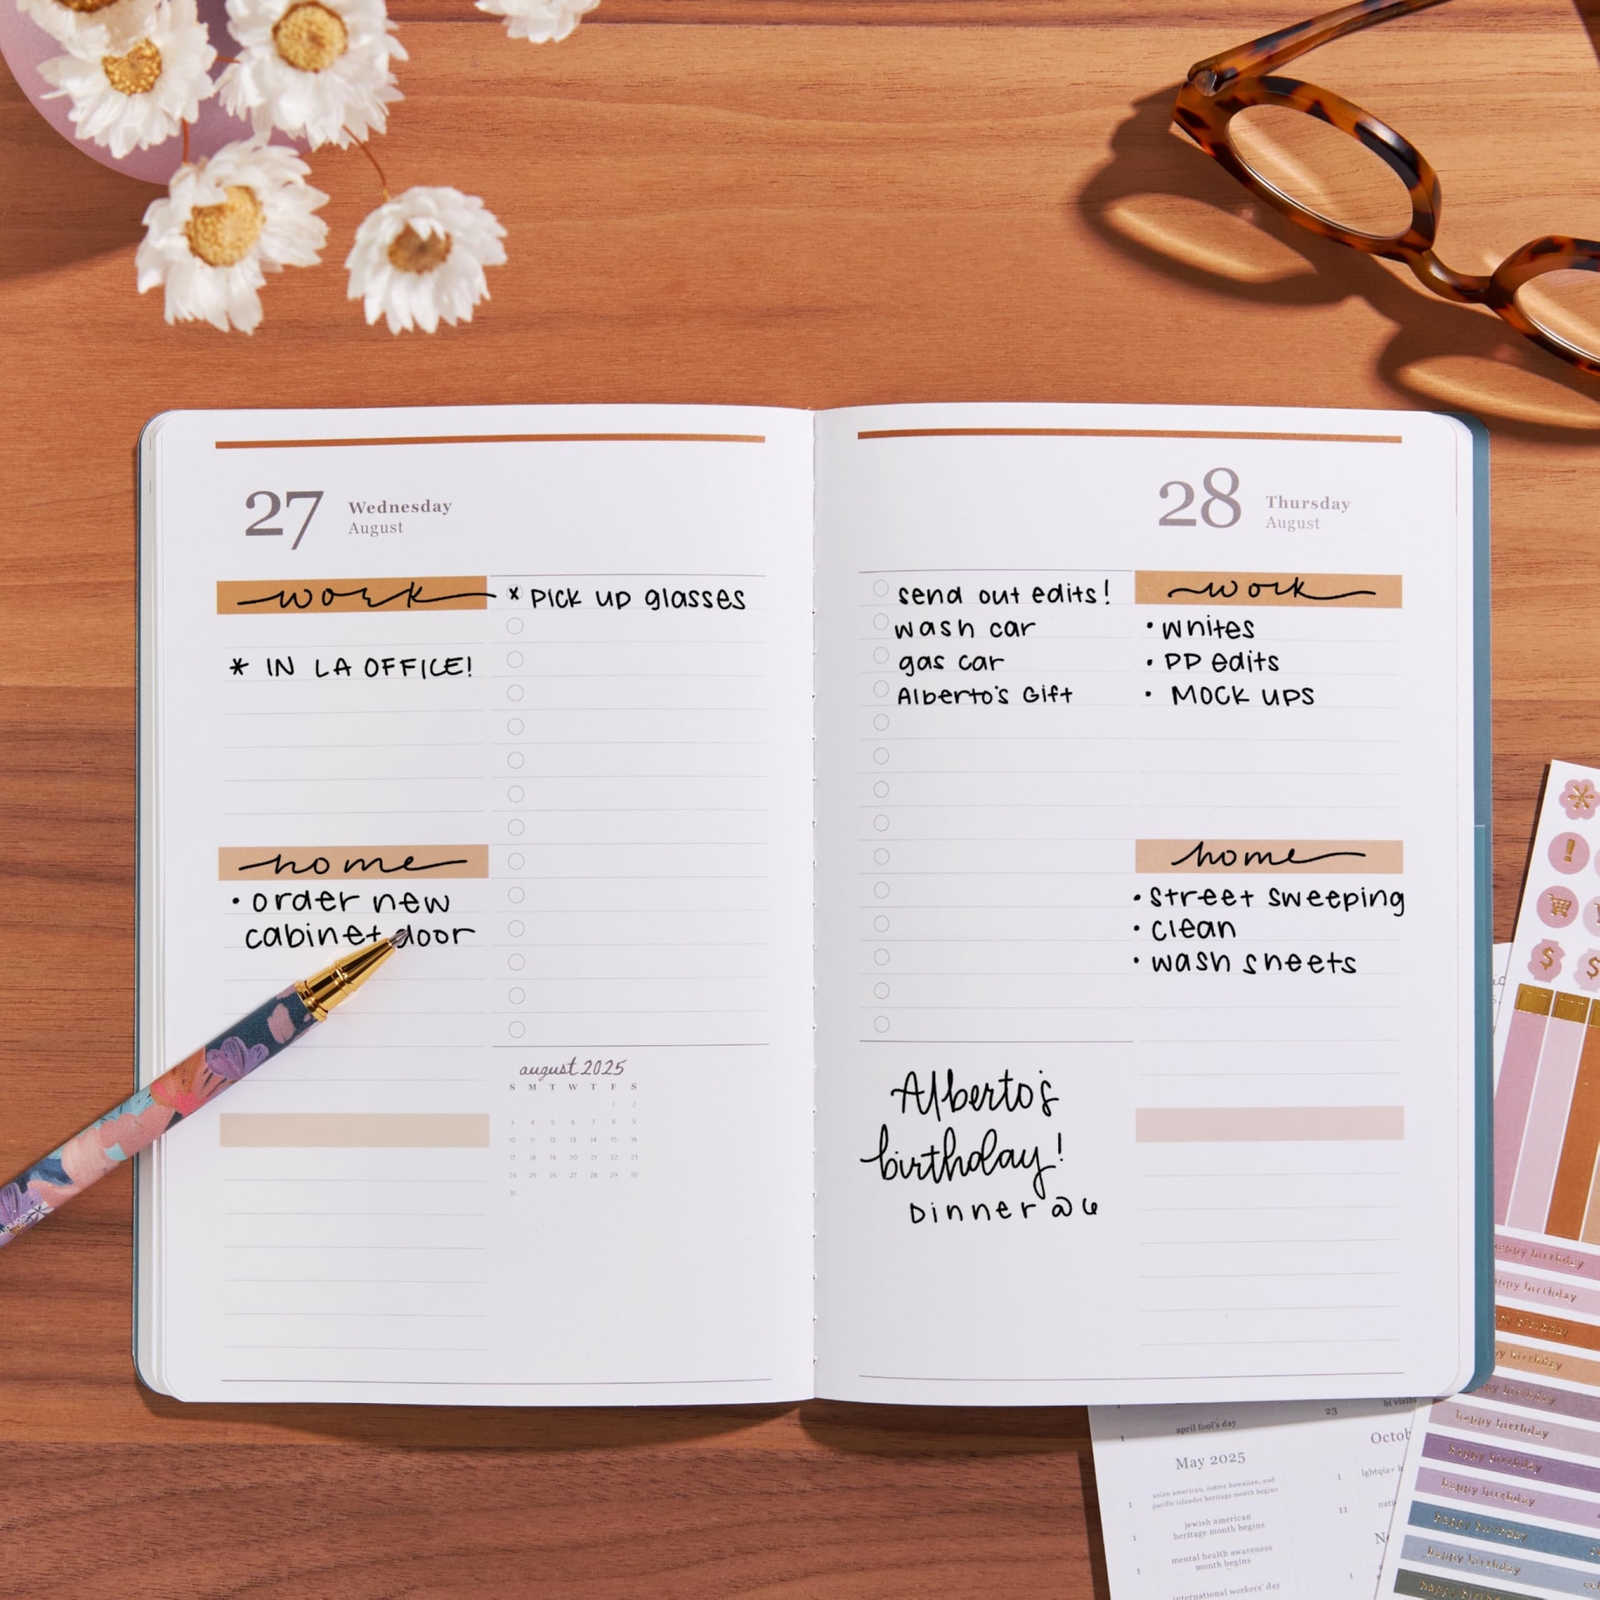 27
Wednesday
August
work
* IN LA OFFICE!
home
• order new
cabinet door
x PICK UP glasses
august 2025
S M T W T F S
1 2
3 4 5 6 7 8 9
10 11 12 13 14 15 16
17 18 19 20 21 22 23
24 25 26 27 28 29 30
31
28
Thursday
August
send out edits!
wash car
gas car
Alberto's Gift
Alberto's
birthday!
Dinner @ 6
work
• whites
• PP edits
• MOCK UPS
home
• street sweeping
• clean
• wash sheets
!
$
$
happy birthday
happy birthday
birthday
birthday
happy birthday
happy birthday
happy birthday
happy birthday
happy birthday
happy birthday
1 april fool's day
May 2025
1 asian american, native hawaiian, and
pacific islander heritage month begins
1 jewish american
heritage month begins
1 mental health awareness
month begins
1 international workers' day
23
Octob
1 lgbtqia+ h
11
1